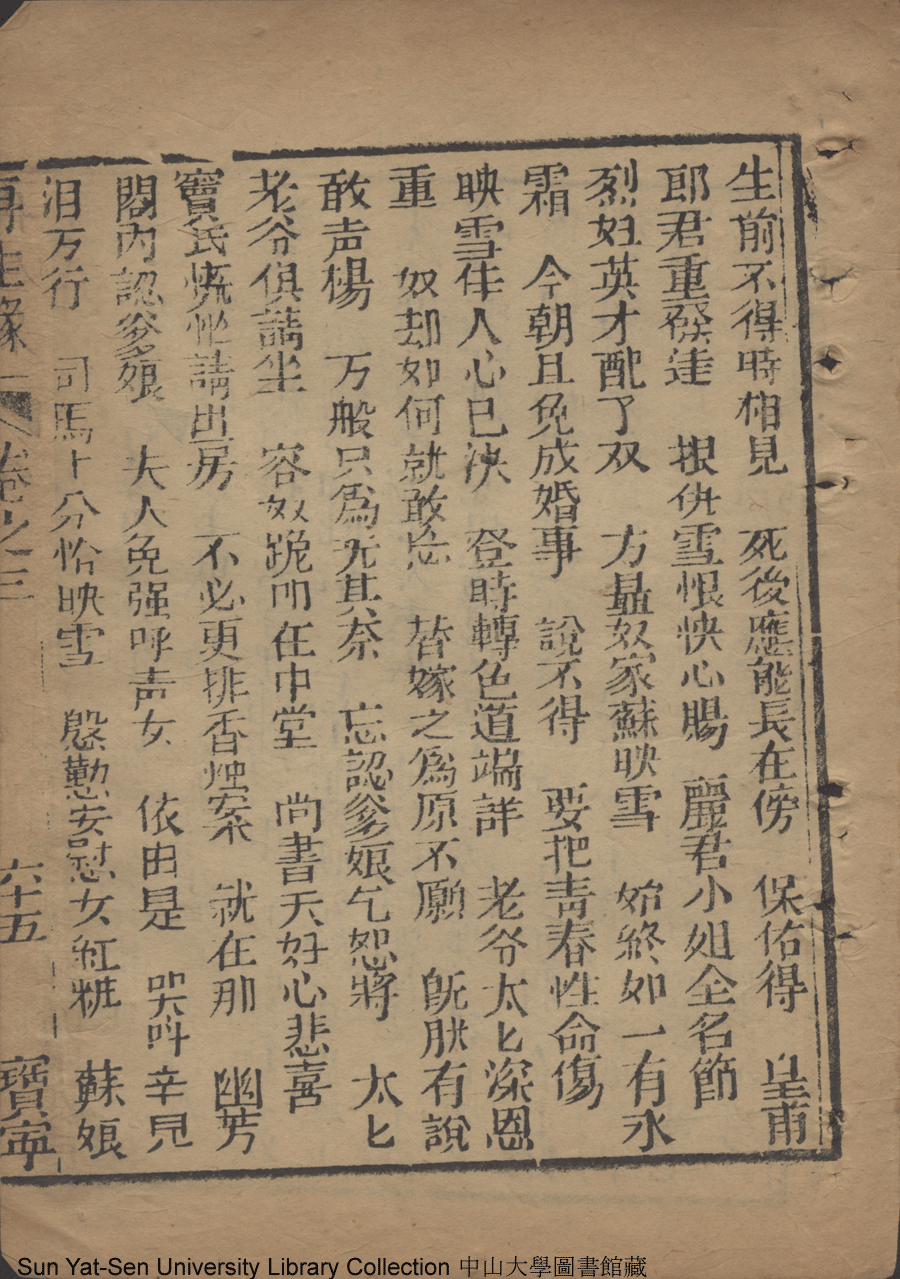 生前不得時相見　死後應能長在傍　保佑得　皇甫
郎君重發達　报仇雪恨快心腸　麗君小姐全名節
烈妇英才配了双　方显奴家蘇映雪　始終如一有氷
霜　今朝且免成婚事　說不得　要把青春性命傷
映雪佳人心已决　登時轉色道端詳　老爷太匕深恩
重　奴却如何就敢忘　替嫁之爲原不願　既肰有說
敢声楊　万般只爲无其奈　忘認爹娘乞恕將　太匕
老爷俱請坐　容奴跪叩在中堂　尚書天好心悲喜
竇氏慌忙請出房　不必更排香烛案　就在那　幽芳
閣內認爹娘　夫人免强呼声女　依旧是　哭呌辛見
泪万行　司馬十分怜映雪　慇懃安慰女紅粧　蘇娘
再生緣　卷之三　六十五　寶寧
Sun Yat-Sen University Library Collection 中山大學圖書館藏